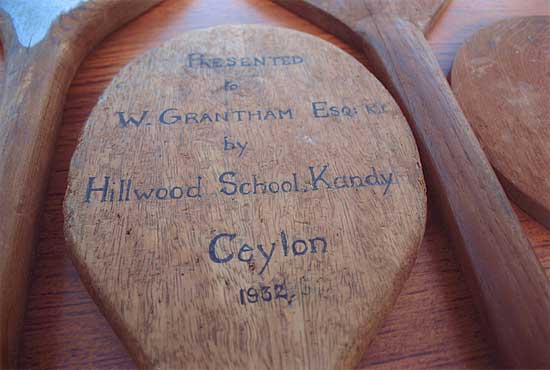 PRESENTED
to
W. GRANTHAM ESQ: K.C
by
Hillwood School. Kandy
Ceylon
1932